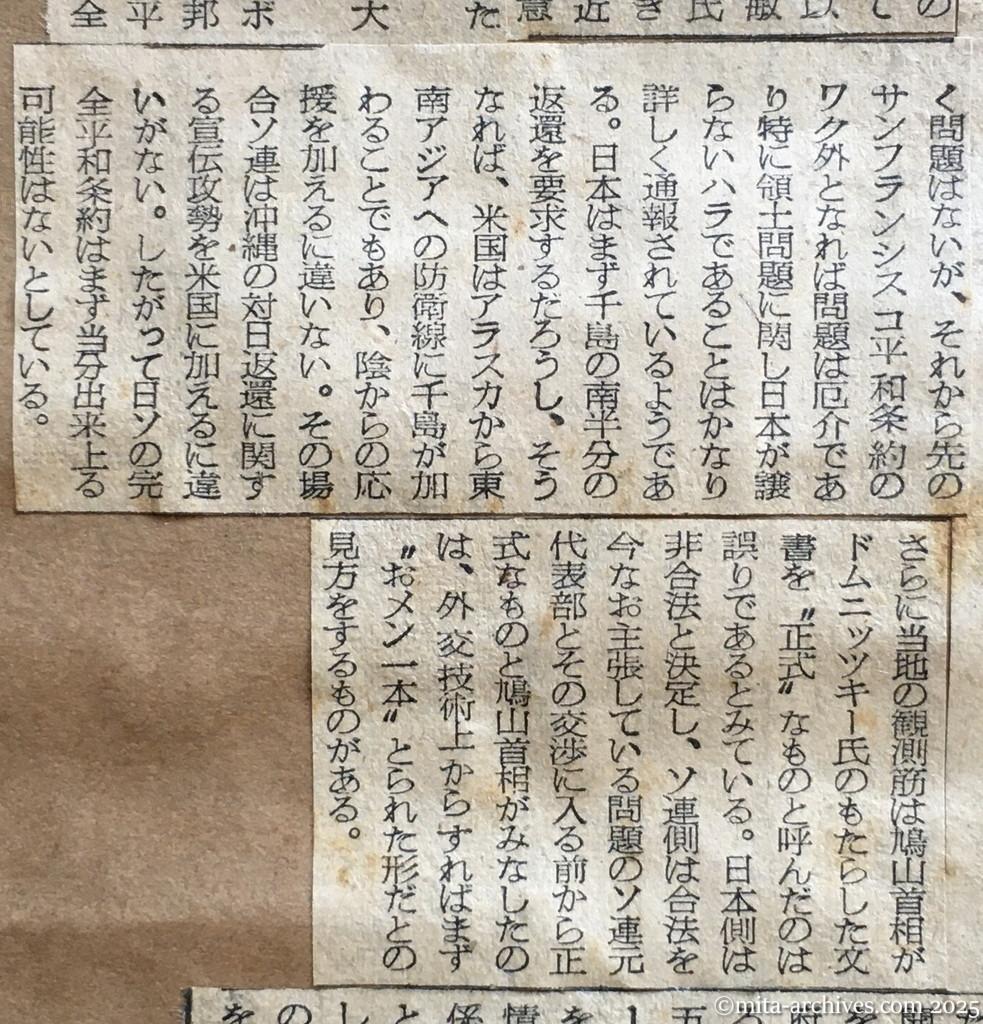 く問題はないが、それから先の
サンフランシスコ平和条約の
ワク外となれば問題は厄介であ
り特に領土問題に関し日本が譲
らないハラであることはかなり
詳しく通報されているようであ
る。日本はまず千島の南半分の
返還を要求するだろうし、そう
なれば、米国はアラスカから東
南アジアへの防衛線に千島が加
わることでもあり、陰からの応
援を加えるに違いない。その場
合ソ連は沖縄の対日返還に関す
る宣伝攻勢を米国に加えるに違
いがない。したがって日ソの完
全平和条約はまず当分出来上る
可能性はないとしている。
さらに当地の観測筋は鳩山首相が
ドムニッツキー氏のもたらした文
書を〝正式〟なものと呼んだのは
誤りであるとみている。日本側は
非合法と決定し、ソ連側は合法を
今なお主張している問題のソ連元
代表部とその交渉に入る前から正
式なものと鳩山首相がみなしたの
は、外交技術上からすればまず
〝おメン一本〟とられた形だとの
見方をするものがある。
©mita-archives.com 2025